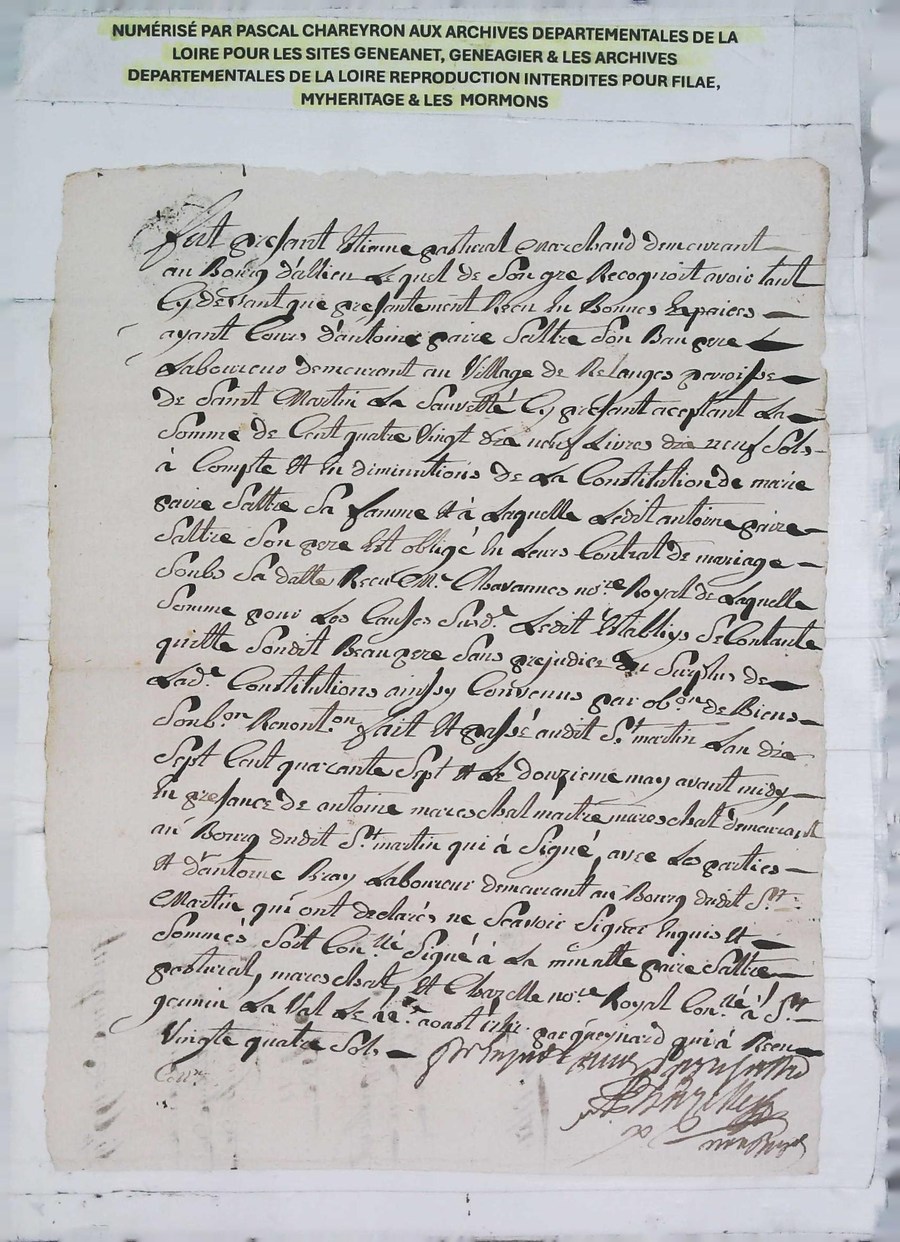 NUMÉRISÉ PAR PASCAL CHAREYRON AUX ARCHIVES DEPARTEMENTALES DE LA
LOIRE POUR LES SITES GENEANET, GENEAGIER & LES ARCHIVES
DEPARTEMENTALES DE LA LOIRE REPRODUCTION INTERDITES POUR FILAE,
MYHERITAGE & LES MORMONS
fut presant Etienne pastural Marchand demeurant
au Bourg d'allieu Lequel de Son gre Recognoit avoir tant
Cy devant que presantement Receu En Bonnes Espaices
ayant Cours d'antoine paire Sattre Son Beau pere
Laboureur demeurant au Village de Relanges paroisse
de Saint Martin La Sauvetté Cy presant aceptant La
Somme de Cent quatre Vingt dix neuf Livres dix neuf Sols
à Compte et En diminutions de La Constitution de marie
paire Sattre Sa famme et à Laquelle Ledit antoine paire
Sattre Son pere Est obligé En Leurs Contrat de mariage
Soubs Sa datte Receu Me Chavannes nore Royal de Laquelle
Somme pour Les Causes Susde Ledit Etably Se Contante
quitte Sondit Beaupere Sans prejudice du Surplus de
Lade Constitutions ainsy Convenus par obon de Biens
Soubon Renonton fait et passé audit St martin Lan dix
Sept Cent quarante Sept et Le douzieme may avant midy
En presance de antoine mareschal maitre mareschal demeurant
au Bourg dudit St martin qui à Signé, avec Les parties
et d'antoine Bray Laboureur demeurant au Bourg dudit St
Martin qui ont declarés ne Scavoir Signer Enquis et
Sommés Soit Conllé Signé à La minutte paire Sattre
pastural, mareschal, et Chazelle nore Royal Conllé à St
germin La Val Le aoust 1747 par queynard qui à Receu
Vingte quatre Sols